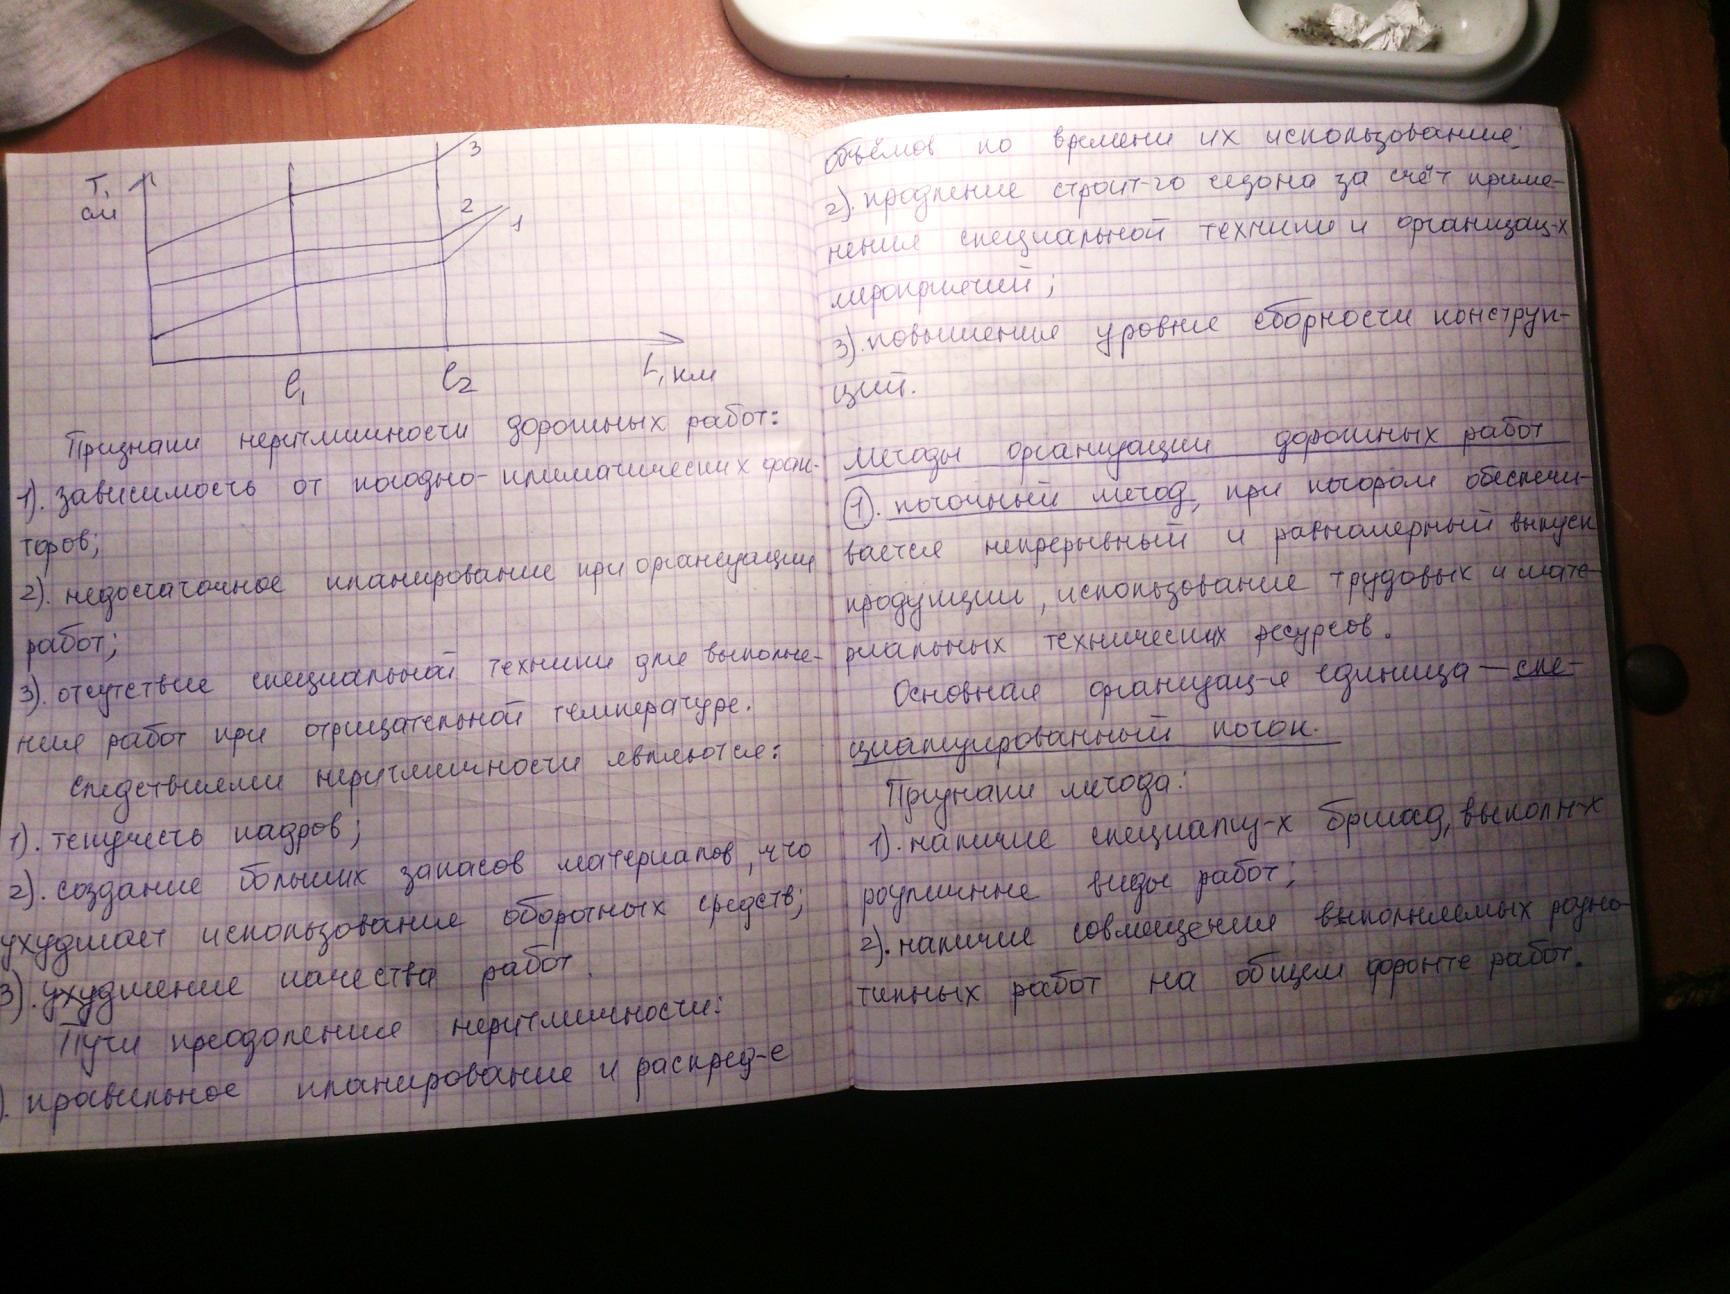 3
Т,
см
2
1
l₁
l₂
L, км
Признаки неритмичности дорожных работ:
1). зависимость от погодно-климатических фак-
торов;
2). недостаточное планирование при организации
работ;
3). отсутствие специальной техники для выполне-
ния работ при отрицательной температуре.
Следствиями неритмичности являются:
1). текучесть кадров;
2). создание больших запасов материалов, что
ухудшает использование оборотных средств;
3). ухудшение качества работ.
Пути преодоления неритмичности:
). правильное планирование и распред-е
объёмов по времени их использования;
2). продление строит-го сезона за счёт приме-
нения специальной техники и организац-х
мероприятий;
3). повышение уровня сборности конструк-
ций.
Методы организации дорожных работ
1. поточный метод, при котором обеспечи-
вается непрерывный и равномерный выпуск
продукции, использование трудовых и мате-
риальных технических ресурсов.
Основная организац-я единица — спе-
циализированный поток.
Признаки метода:
1). наличие специализ-х бригад, выполн-х
различные виды работ;
2). наличие совмещения выполняемых разно-
типных работ на общем фронте работ.